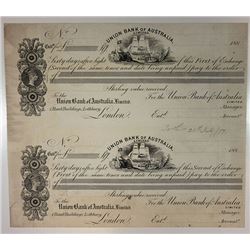 UNION BANK OF AUSTRALIA
188
Sixty days after sight of this First of Exchange
Second of the same tenor and date being unpaid pay to the order
Sterling value received
To the
Union Bank of Australia, Limited
1 Bank Buildings, Lothbury
London
For the Union Bank of Australia
LIMITED
Manager
Accountant
UNION BANK OF AUSTRALIA
188
Sixty days after sight of this Second of Exchange
First of the same tenor and date being unpaid pay to the order
Sterling value received
To the
Union Bank of Australia, Limited
1 Bank Buildings, Lothbury
London
For the Union Bank of Australia
LIMITED
Manager